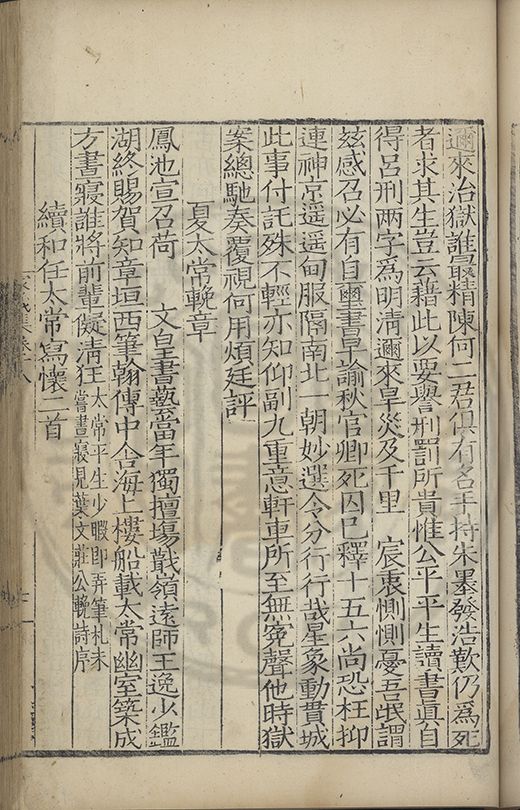 邇來治獄誰最精陳何二君俱有名手持朱墨發浩歎仍爲死
者求其生豈云藉此以要譽刑罰所貴惟公平平生讀書真自
得呂刑两字爲明清邇來旱災及千里　宸衷惻惻憂吾氓謂
茲感召必有自璽書早諭秋官卿死囚已釋十五六尚恐枉抑
連神京遥遥甸服隔南北一朝妙選令分行行哉星象動貫城
此事付託殊不輕亦知仰副九重意軒車所至無寃聲他時獄
案總馳奏覆視何用煩廷評
夏太常輓章
鳳池宣召荷　文皇書埶當年獨擅塲戢嶺遠師王逸少鑑
湖終賜賀知章垣西筆翰傳中舍海上樓船載太常幽室築成
方晝寢誰將前輩儗清狂太常平生少暇即弄筆札未
甞晝寢見葉文莊公輓詩序
續和任太常寫懷二首